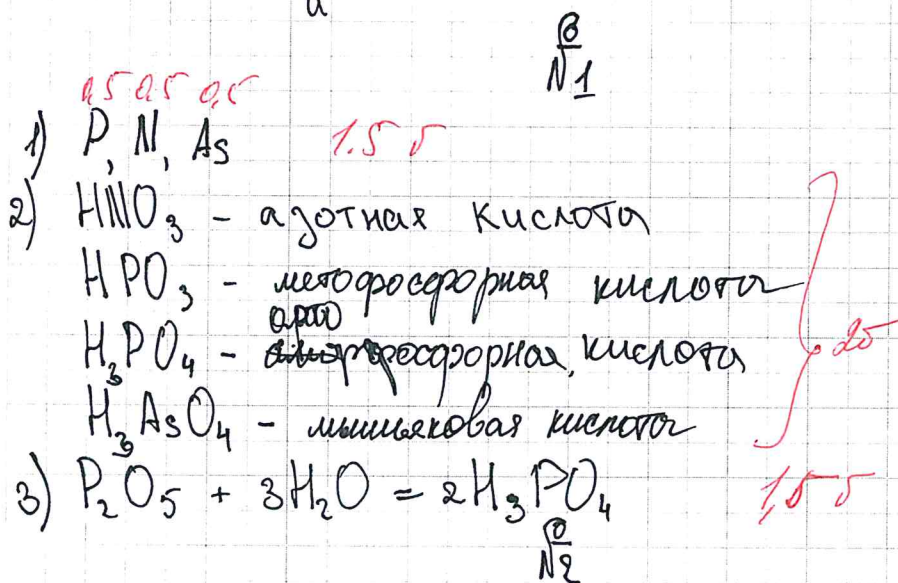 №1
0,5 0,5 0,5
1) P, N, As 1.5 б
2) HNO₃ - азотная кислота
HPO₃ - метофосфорная кислота
орто
H₃PO₄ - фосфорная кислота
2б
H₃AsO₄ - мышьяковая кислота
3) P₂O₅ + 3H₂O = 2H₃PO₄ 1,5 б
№2